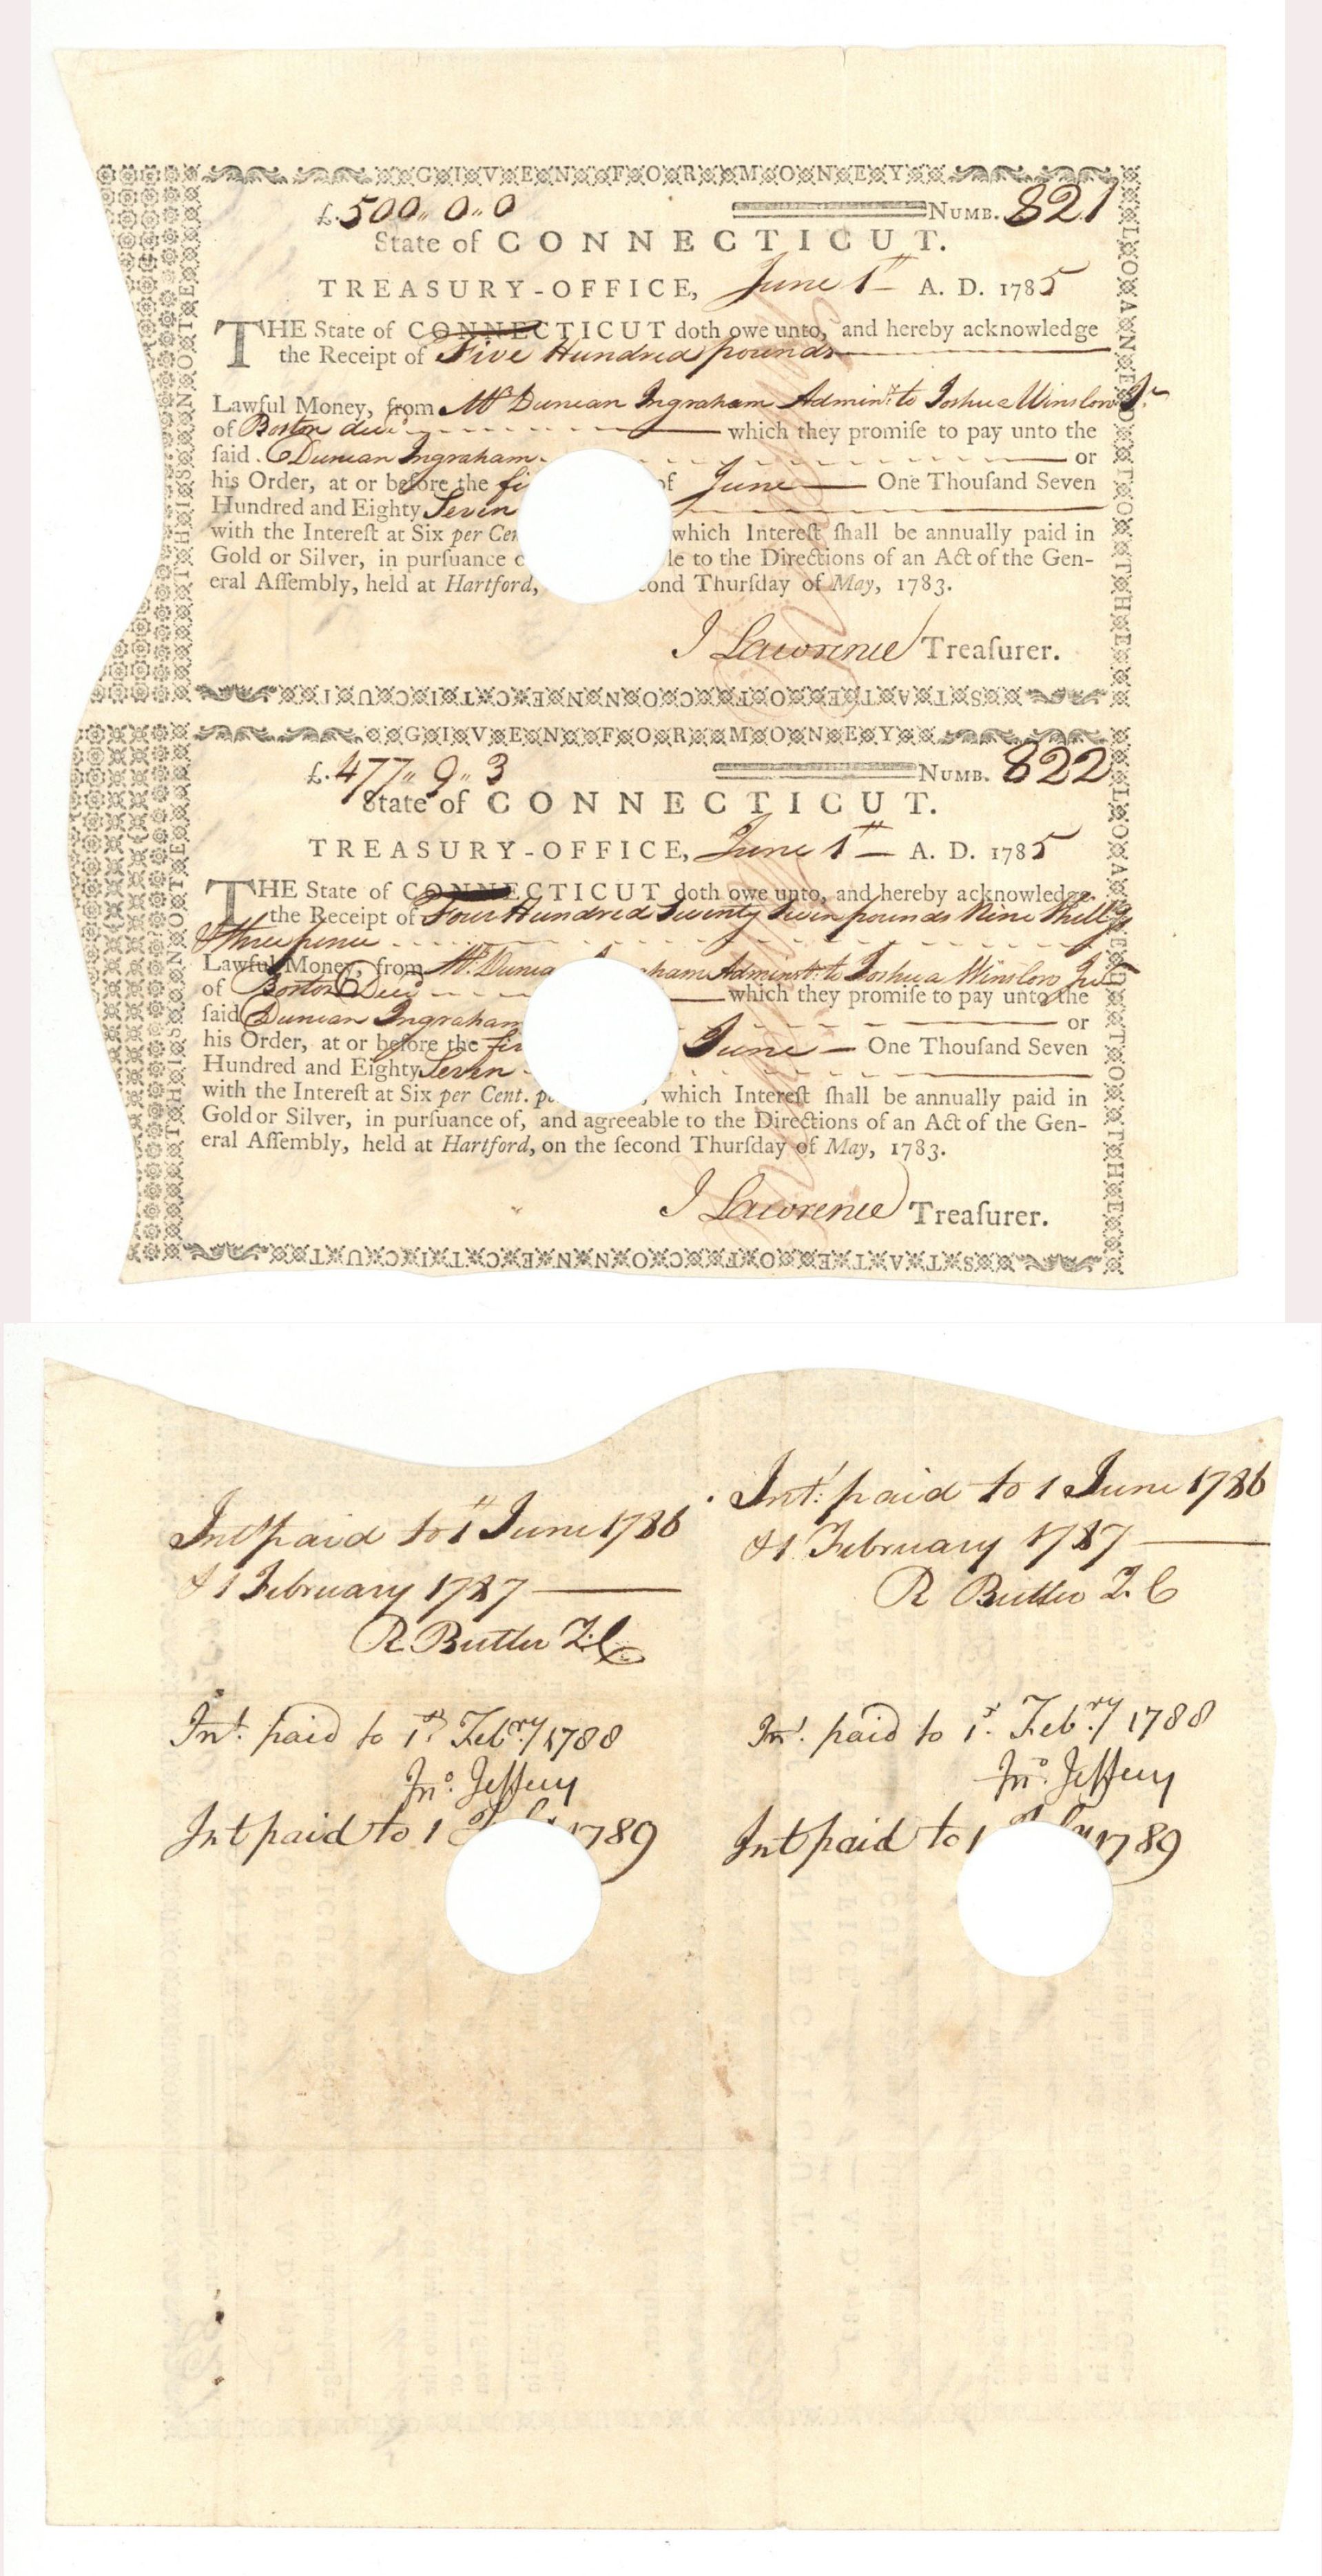 GIVEN FOR MONEY
£.500,, 0,, 0 NUMB. 821
State of CONNECTICUT.
TREASURY-OFFICE, June 1st A. D. 1785
THE State of CONNECTICUT doth owe unto, and hereby acknowledge
the Receipt of Five Hundred pounds
Lawful Money, from Mr Duncan Ingraham Adminr. to Joshua Winslow Jr
of Boston decd which they promiſe to pay unto the
ſaid Duncan Ingraham or
his Order, at or before the fi of June One Thouſand Seven
Hundred and Eighty Seven
with the Intereſt at Six per Cen which Intereſt ſhall be annually paid in
Gold or Silver, in purſuance le to the Directions of an Act of the Gen-
eral Aſſembly, held at Hartford, cond Thurſday of May, 1783.
J Lawrence Treaſurer.
STATE OF CONNECTICUT
THIS LOAN NOTE
LOAN TO THE
GIVEN FOR MONEY
£.477,, 9,, 3 NUMB. 822
State of CONNECTICUT.
TREASURY-OFFICE, June 1st A. D. 1785
THE State of CONNECTICUT doth owe unto, and hereby acknowledge
the Receipt of Four Hundred Seventy Seven pounds Nine Shillgs
& three pence
Lawful Money, from Mr. Dunca ham Adminst. to Joshua Winslow Junr
of Boston Decd which they promiſe to pay unto the
ſaid Duncan Ingraham or
his Order, at or before the fir June One Thouſand Seven
Hundred and Eighty Seven
with the Intereſt at Six per Cent. p , which Intereſt ſhall be annually paid in
Gold or Silver, in purſuance of, and agreeable to the Directions of an Act of the Gen-
eral Aſſembly, held at Hartford, on the ſecond Thurſday of May, 1783.
J Lawrence Treaſurer.
STATE OF CONNECTICUT
THIS LOAN NOTE
LOAN TO THE
Intt paid to 1st June 1786
& 1 February 1787
R Butler L.C
Int. paid to 1st. Febry 1788
Jno. Jeffery
Int paid to 1 1789
Int: paid to 1 June 1786
& 1 February 1787
R Butler L C
Int. paid to 1st. Febry 1788
Jno. Jeffery
Int paid to 1 1789